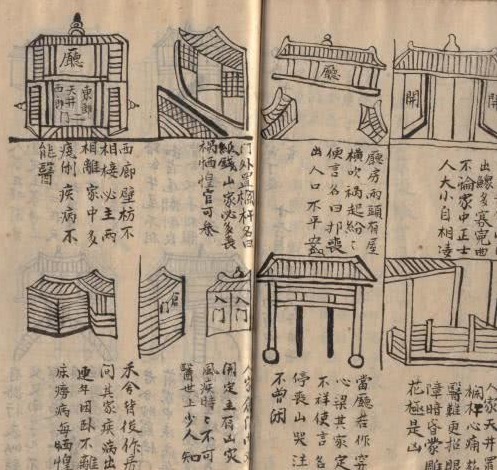 開
開
不論家中正士
人大小自相凌
廳
廳房兩頭有屋
橫吹禍起紛〻
便言名曰邦喪
出人口不平安
門外置欄杆名曰
紙錢山家必多喪
禍牺惶官可參
廳
東廊
天井
西廊
門
西廊壁枋不
相接必主兩
相離家中多
疾病不
能醫
家天井置
欄杆心痛
醫難更招眼
障時昏蒙雕
花極是凶
當廳若作穿
心梁其家定
不祥便言名
停喪山哭注
不曾閑
門
門
人家
開定主有山家
風疾時〻不可
醫世上少人知
門
禾倉背後作房
間其家疾病出
連年困卧不離
床癆病每牺惶